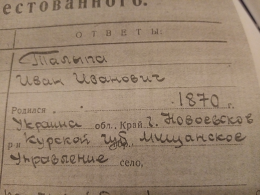 естованного.
ОТВЕТЫ:
Талыпа
Иван Иванович
Родился 1870 г.
Украина обл., Край г. Новоевское
р-н Курской губ Мищанское
Управление село,